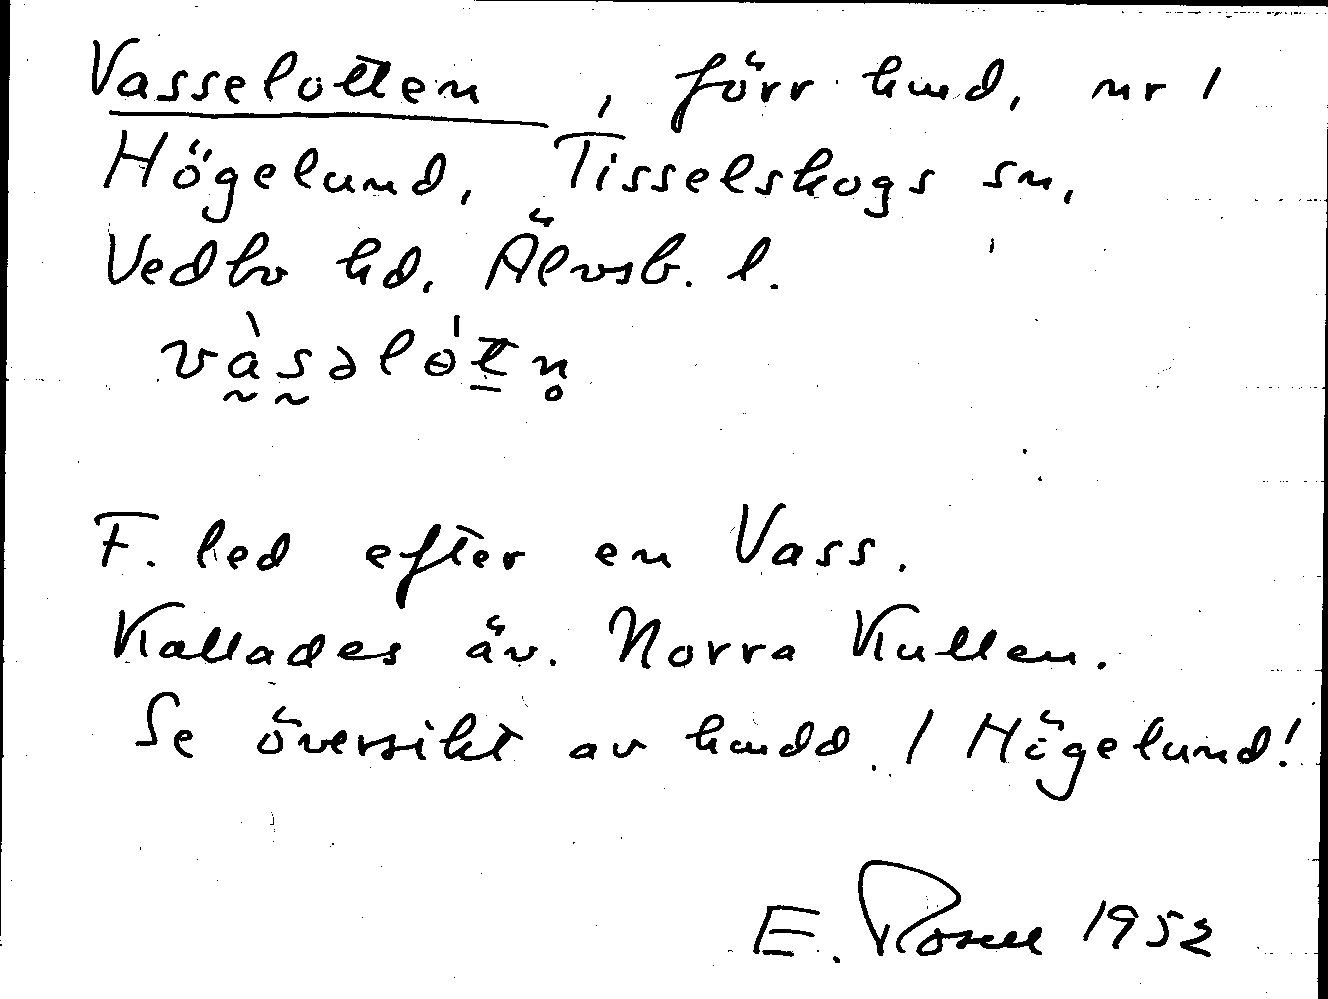 Vasselotten, förr hmd, nr 1
Högelund, Tisselskogs sn,
Vedbo hd. Älvsb. l.
vàsəlótn̥
F. led efter en Vass.
Kallades äv. Norra Kullen.
Se översikt av hmdd. 1 Högelund!
E. Rosell 1952